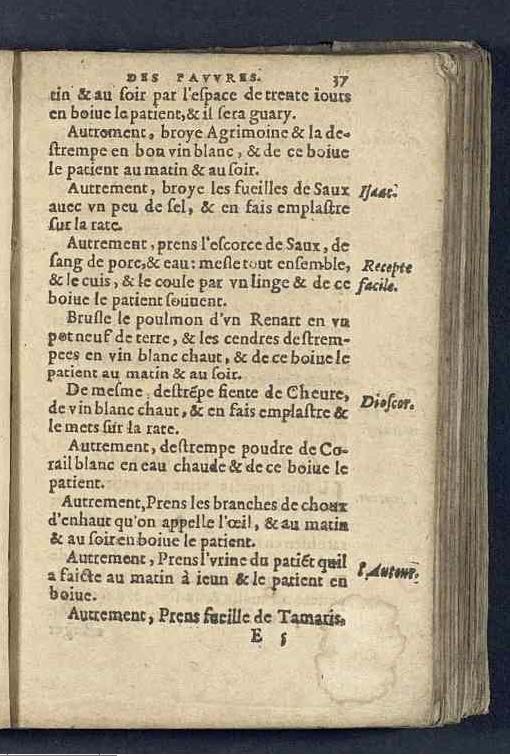 DES PAVVRES. 37
tin & au ſoir par l'eſpace de trente iours
en boiue le patient, & il ſera guary.
Autrement, broye Agrimoine & la de-
ſtrempe en bon vin blanc, & de ce boiue
le patient au matin & au ſoir.
Autrement, broye les fueilles de Saux
Iſaac.
auec vn peu de ſel, & en fais emplaſtre
ſur la rate.
Autrement, prens l'eſcorce de Saux, de
ſang de porc, & eau: meſle tout enſemble,
Recepte
& le cuis, & le coule par vn linge & de ce
facile.
boiue le patient ſouuent.
Bruſle le poulmon d'vn Renart en vn
pot neuf de terre, & les cendres deſtrem-
pees en vin blanc chaut, & de ce boiue le
patient au matin & au ſoir.
De meſme, deſtrẽpe fiente de Cheure,
Dioſcor.
de vin blanc chaut, & en fais emplaſtre &
le mets ſur la rate.
Autrement, deſtrempe poudre de Co-
rail blanc en eau chaude & de ce boiue le
patient.
Autrement, Prens les branches de choux
d'enhaut qu'on appelle l'œil, & au matin
& au ſoir en boiue le patient.
Autrement, Prens l'vrine du patiẽt quil
l'Auteur.
a faicte au matin à ieun & le patient en
boiue.
Autrement, Prens fueille de Tamaris,
E 5